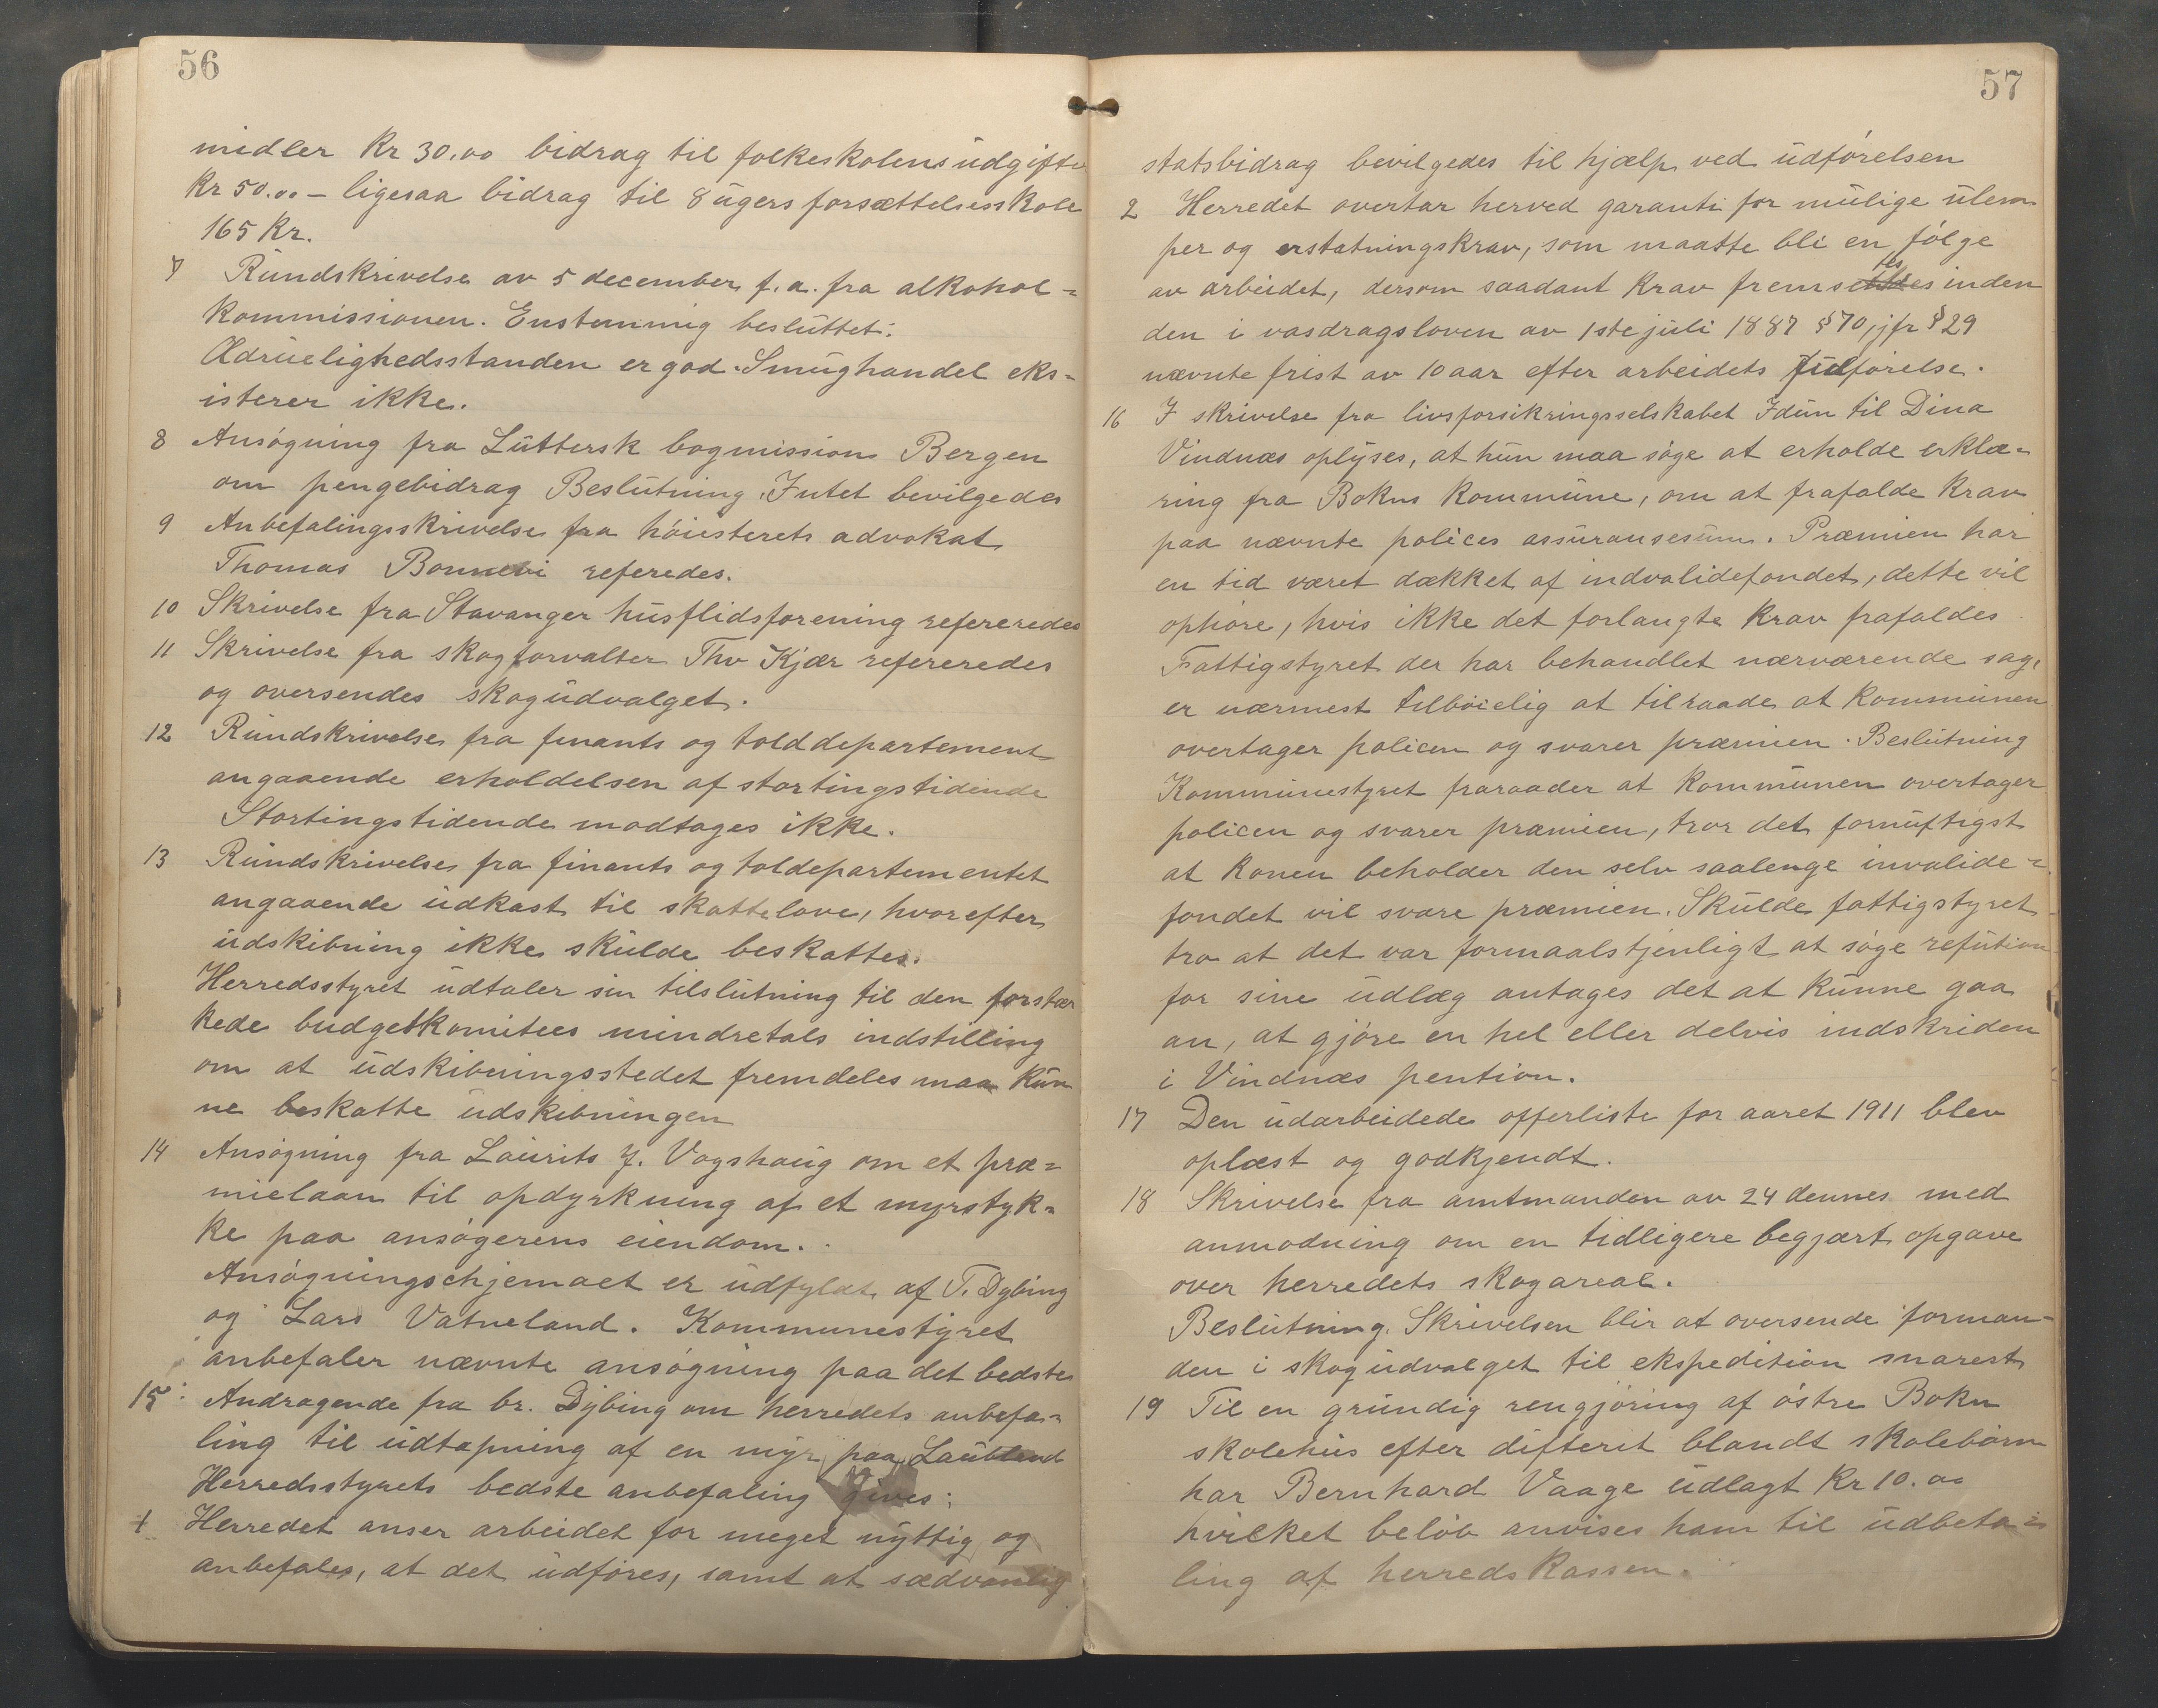 56
midler Kr 30.00 bidrag til folkeskolens udgifte
Kr 50.00 – ligesaa bidrag til 8 ugers forsættelsesskole
165 Kr.
7 Rundskrivelse av 5 december f.a. fra alkohol=
kommissionen. Enstemmig besluttet:
Ædruelighedsstanden er god. Smughandel eks=
isterer ikke.
8 Ansøgning fra Luttersk bogmission Bergen
om pengebidrag Beslutning. Intet bevilgedes
9 Anbefalingsskrivelse fra høiesterets advokat
Thomas Bonnevi referedes.
10 Skrivelse fra Stavanger husflidsforening refereredes
11 Skrivelse fra skogforvalter Thv Kjær refereredes
og oversendes skogudvalget.
12 Rundskrivelse fra finants og tolddepartement
angaaende erholdelsen af stortingstidende
Stortingstidende modtages ikke.
13 Rundskrivelse fra finants og toldepartementet
angaaende udkast til skattelove, hvorefter
udskibning ikke skulde beskattes.
Herredsstyret udtaler sin tilslutning til den forstær
kede budgetkomitees mindretals indstilling
om at udskibningsstedet fremdeles maa kun
ne beskatte udskibningen
14 Ansøgning fra Laurits J. Vogshaug om et præ=
mielaan til opdyrkning af et myrstyk=
ke paa ansøgerens eiendom.
Ansøgningschjemaet er udfyldt af T. Dybing
og Lars Vatneland. Kommunestyret
anbefaler nævnte ansøgning paa det bedste
15: Andragende fra br. Dybing om herredets anbefa=
ling til udtapning af en myr paa Laubland
Herredsstyrets bedste anbefaling gives:
1 Herredet anser arbeidet for meget nyttig og
anbefales, at det udføres, samt at sædvanlig
57
statsbidrag bevilgedes til hjælp ved udførelsen
2 Herredet overtar herved garanti for mulige ulem
per og erstatningskrav, som maatte bli en følge
av arbeidet, dersom saadant krav fremsættes inden
den i vasdragsloven av 1ste juli 1887 § 70, jfr § 29
nævnte frist av 10 aar efter arbeidets fulførelse.
16 I skrivelse fra livsforsikringsselskabet Idun til Dina
Vindnæs oplyses, at hun maa søge at erholde erklæ=
ring fra Bokn kommune, om at frafalde krav
paa nævnte polices assuransesum. Præmien har
en tid været dækket af indvalidefondet, dette vil
ophøre, hvis ikke det forlangte krav frafaldes
Fattigstyret der har behandlet nærværende sag,
er nærmest tilbøielig at tilraade at kommunen
overtager policen og svarer præmien. Beslutning
Kommunestyret fraraader at kommunen overtager
policen og svarer præmien, tror det fornuftigst
at konen beholder den selv saalenge invalide=
fondet vil svare præmien. Skulde fattigstyret
tro at det var formaalstjenligt at søge refution
for sine udlæg antages det at kunne gaa
an, at gjøre en hel eller delvis indskriden
i Vindnæs pention.
17 Den udarbeidede offerliste for aaret 1911 blev
oplæst og godkjendt.
18 Skrivelse fra amtmanden av 24 dennes med
anmodning om en tidligere begjært opgave
over herredets skogareal.
Beslutning. Skrivelsen blir at oversende forman=
den i skogudvalget til ekspedition snarest
19 Til en grundig rengjøring af østre Bokn
skolehus efter difterit blandt skolebørn
har Bernhard Vaage udlagt Kr 10.00
hvilket beløb anvises ham til udbeta=
ling af herredskassen.